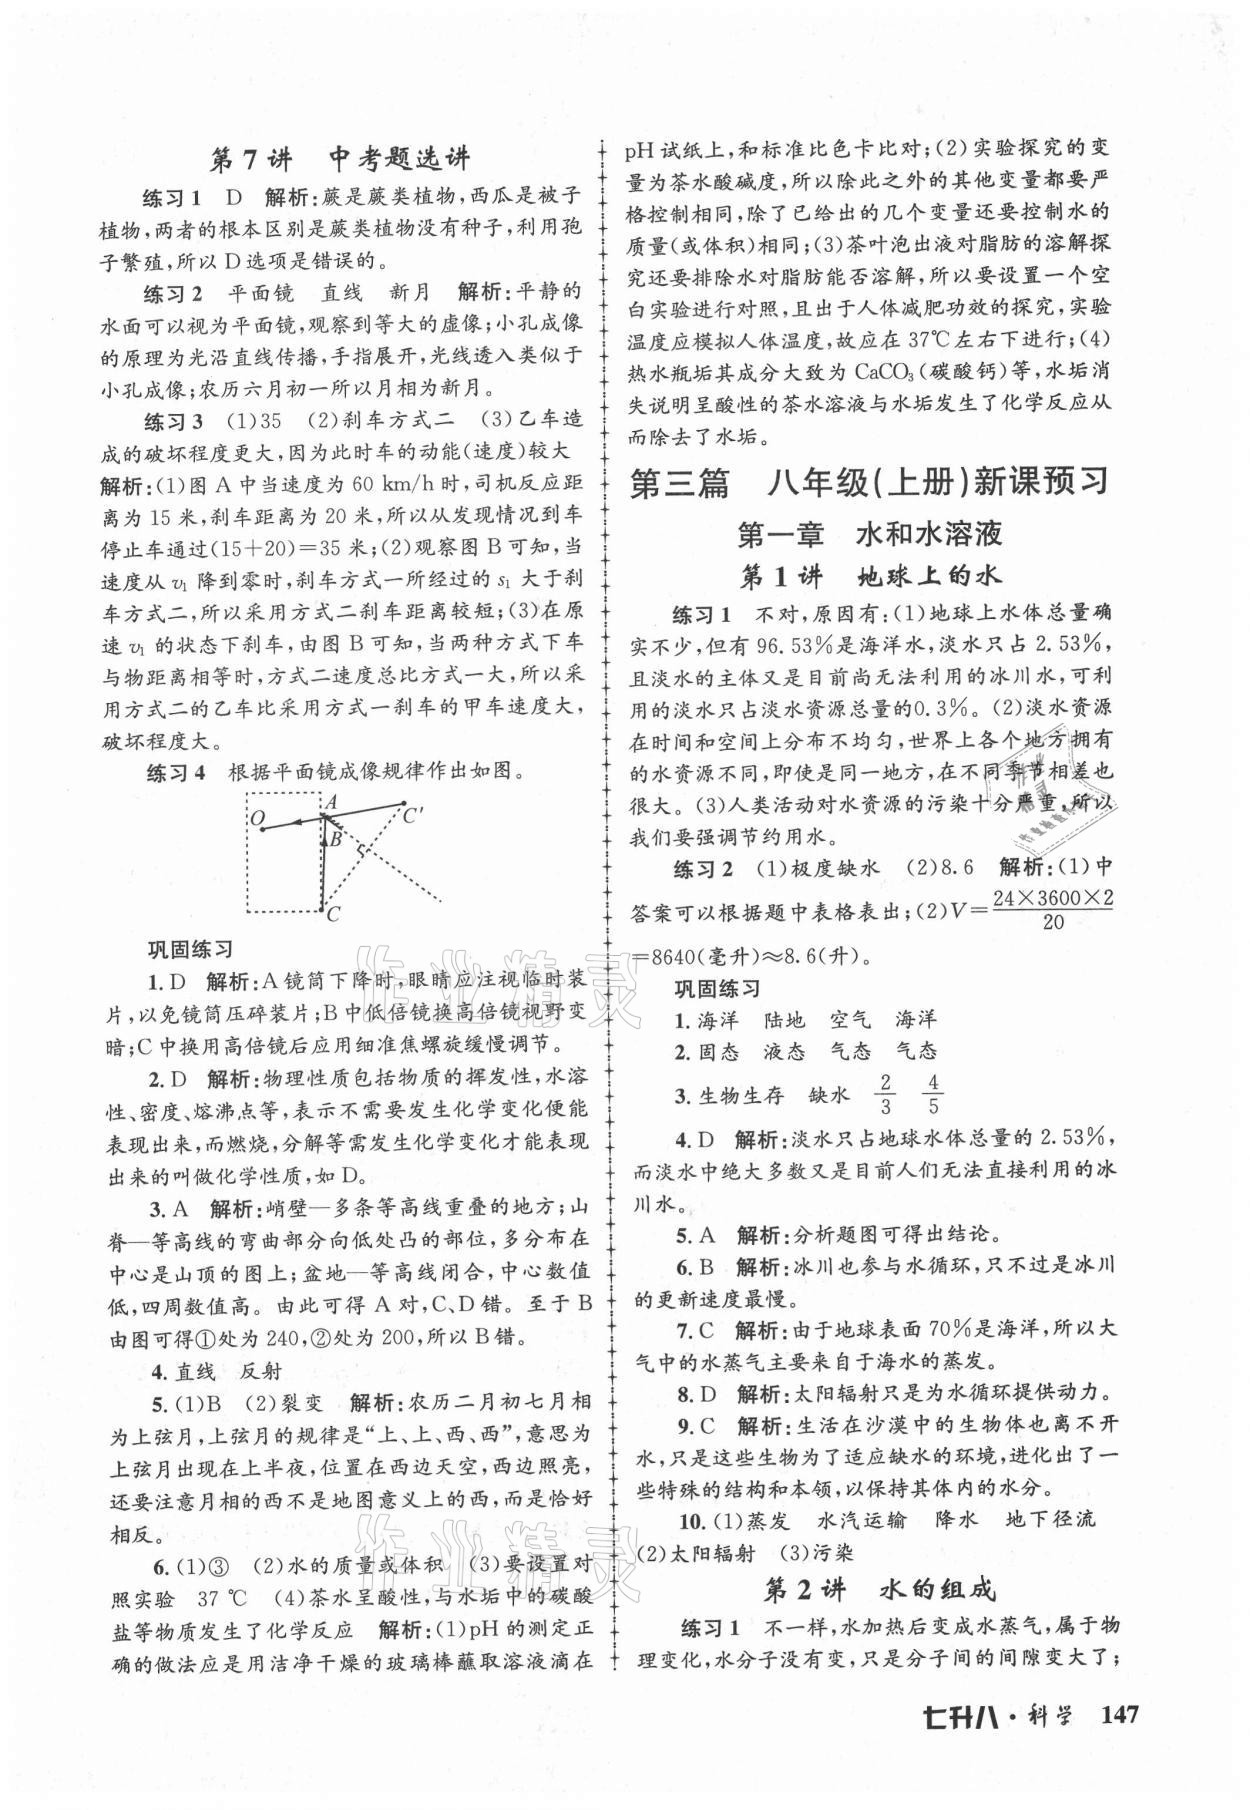 第7讲 中考题选讲
练习1 D 解析:蕨是蕨类植物,西瓜是被子
植物,两者的根本区别是蕨类植物没有种子,利用孢
子繁殖,所以D选项是错误的。
练习2 平面镜 直线 新月 解析:平静的
水面可以视为平面镜,观察到等大的虚像;小孔成像
的原理为光沿直线传播,手指展开,光线透入类似于
小孔成像;农历六月初一所以月相为新月。
练习3 (1)35 (2)刹车方式二 (3)乙车造
成的破坏程度更大,因为此时车的动能(速度)较大
解析:(1)图A中当速度为60 km/h时,司机反应距
离为15米,刹车距离为20米,所以从发现情况到车
停止车通过(15+20)=35米;(2)观察图B可知,当
速度从v₁降到零时,刹车方式一所经过的s₁大于刹
车方式二,所以采用方式二刹车距离较短;(3)在原
速v₁的状态下刹车,由图B可知,当两种方式下车
与物距离相等时,方式二速度总比方式一大,所以采
用方式二的乙车比采用方式一刹车的甲车速度大,
破坏程度大。
练习4 根据平面镜成像规律作出如图。
O A C′
B
C
巩固练习
1. D 解析:A镜筒下降时,眼睛应注视临时装
片,以免镜筒压碎装片;B中低倍镜换高倍镜视野变
暗;C中换用高倍镜后应用细准焦螺旋缓慢调节。
2. D 解析:物理性质包括物质的挥发性,水溶
性、密度、熔沸点等,表示不需要发生化学变化便能
表现出来,而燃烧,分解等需发生化学变化才能表现
出来的叫做化学性质,如D。
3. A 解析:峭壁—多条等高线重叠的地方;山
脊—等高线的弯曲部分向低处凸的部位,多分布在
中心是山顶的图上;盆地—等高线闭合,中心数值
低,四周数值高。由此可得A对,C、D错。至于B
由图可得①处为240,②处为200,所以B错。
4. 直线 反射
5. (1)B (2)裂变 解析:农历二月初七月相
为上弦月,上弦月的规律是“上、上、西、西”,意思为
上弦月出现在上半夜,位置在西边天空,西边照亮,
还要注意月相的西不是地图意义上的西,而是恰好
相反。
6. (1)③ (2)水的质量或体积 (3)要设置对
照实验 37 ℃ (4)茶水呈酸性,与水垢中的碳酸
盐等物质发生了化学反应 解析:(1)pH的测定正
确的做法应是用洁净干燥的玻璃棒蘸取溶液滴在
pH试纸上,和标准比色卡比对;(2)实验探究的变
量为茶水酸碱度,所以除此之外的其他变量都要严
格控制相同,除了已给出的几个变量还要控制水的
质量(或体积)相同;(3)茶叶泡出液对脂肪的溶解探
究还要排除水对脂肪能否溶解,所以要设置一个空
白实验进行对照,且出于人体减肥功效的探究,实验
温度应模拟人体温度,故应在37℃左右下进行;(4)
热水瓶垢其成分大致为CaCO₃(碳酸钙)等,水垢消
失说明呈酸性的茶水溶液与水垢发生了化学反应从
而除去了水垢。
第三篇 八年级(上册)新课预习
第一章 水和水溶液
第1讲 地球上的水
练习1 不对,原因有:(1)地球上水体总量确
实不少,但有96.53%是海洋水,淡水只占2.53%,
且淡水的主体又是目前尚无法利用的冰川水,可利
用的淡水只占淡水资源总量的0.3%。(2)淡水资源
在时间和空间上分布不均匀,世界上各个地方拥有
的水资源不同,即使是同一地方,在不同季节相差也
很大。(3)人类活动对水资源的污染十分严重,所以
我们要强调节约用水。
练习2 (1)极度缺水 (2)8.6 解析:(1)中
答案可以根据题中表格表出;(2)V=24×3600×2/20
=8640(毫升)≈8.6(升)。
巩固练习
1. 海洋 陆地 空气 海洋
2. 固态 液态 气态 气态
3. 生物生存 缺水 2/3 4/5
4. D 解析:淡水只占地球水体总量的2.53%,
而淡水中绝大多数又是目前人们无法直接利用的冰
川水。
5. A 解析:分析题图可得出结论。
6. B 解析:冰川也参与水循环,只不过是冰川
的更新速度最慢。
7. C 解析:由于地球表面70%是海洋,所以大
气中的水蒸气主要来自于海水的蒸发。
8. D 解析:太阳辐射只是为水循环提供动力。
9. C 解析:生活在沙漠中的生物体也离不开
水,只是这些生物为了适应缺水的环境,进化出了一
些特殊的结构和本领,以保持其体内的水分。
10. (1)蒸发 水汽运输 降水 地下径流
(2)太阳辐射 (3)污染
第2讲 水的组成
练习1 不一样,水加热后变成水蒸气,属于物
理变化,水分子没有变,只是分子间的间隙变大了;
七升八·科学 147
作业精灵
作业精灵